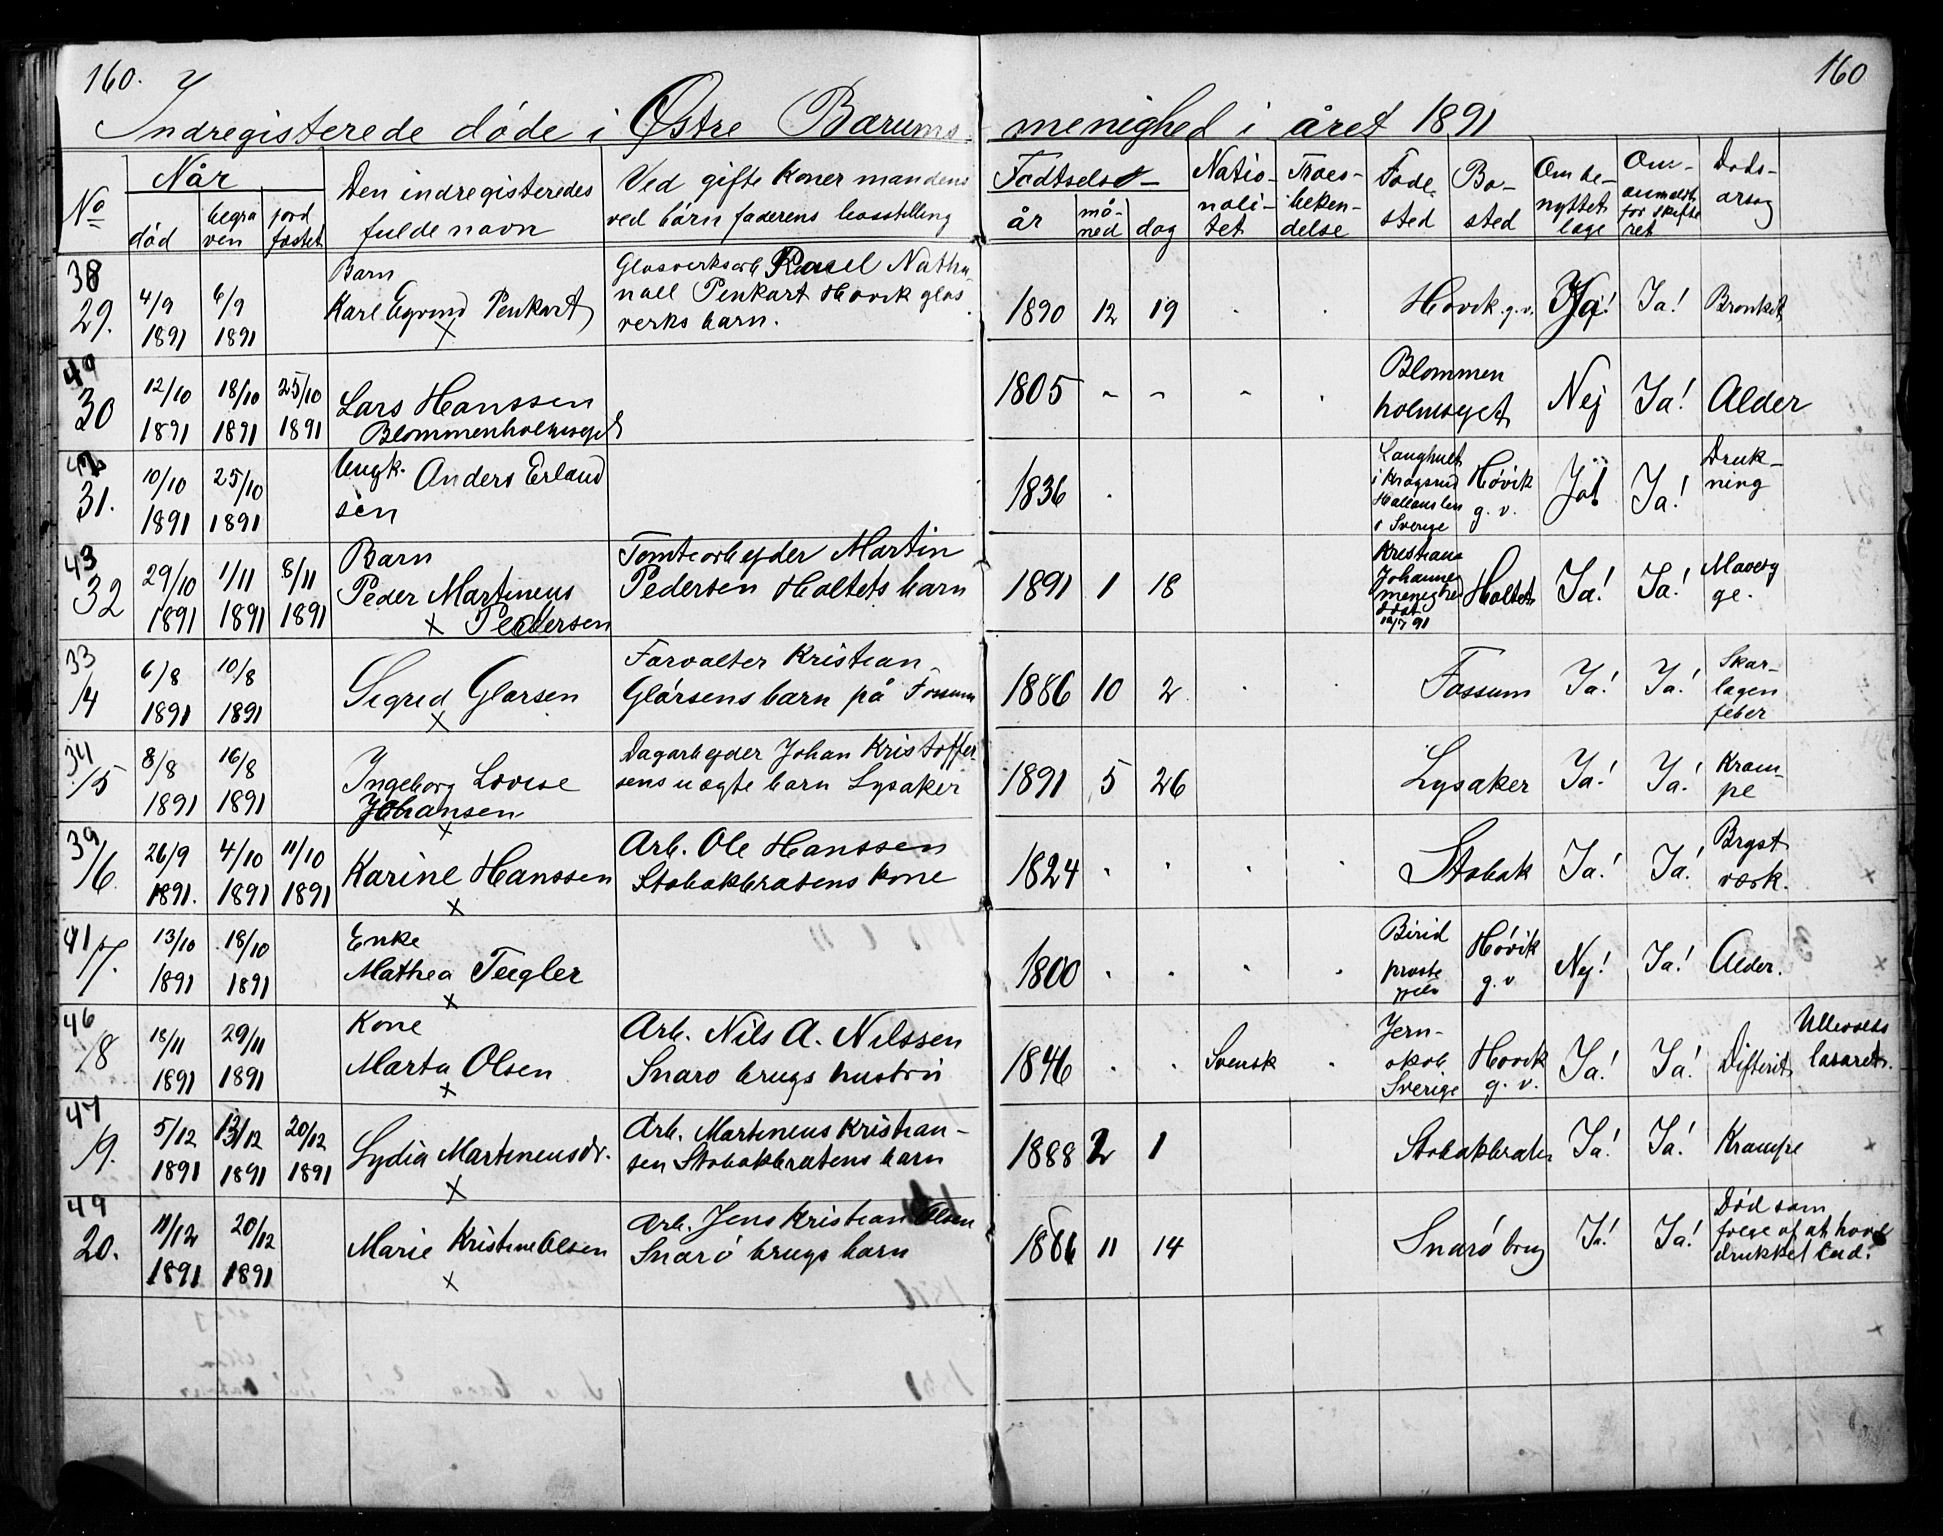 160.
160
Indregisterede døde i Østre Bærums menighed i året 1891
No
Når
død
begra
ven
jord
fæstet
Den indregisteredes
fulde navn
Ved gifte koner mandens
ved børn faderens livsstilling
Fødtselsd
år
må-
ned
dag
Natio-
nali-
tet
Troes-
beken-
delse
Føde
sted
Bo-
sted
Om be-
nyttet
læge
Om
anmeldt
for skifte
ret
Døds-
årsag
38
29.
4/9
1891
6/9
1891
Barn
Karl Penkart
X
Glasverksarb Natha-
nall Penkart Hövik glas
verks barn.
1890 12 19
Hövik g. v.
Ja!
Ja!
Bronkit
30
12/10
1891
18/10
1891
25/10
1891
Lars Hanssen
1805
Blommen
Nej
Ja!
Alder
31.
10/10
1891
25/10
1891
Ungk. Anders Erland
sen
1836
i Sverige
Hövik
g. v.
Ja!
Druk-
ning
43
32
29/10
1891
1/11
1891
8/11
1891
Barn
Peder Martineus
X Pedersen
Tomtearbejder Martin
Pedersen Holtets barn
1891 1 18
Kristiania
Johannes
menighed
Holtet
Ja!
Ja!
33
14
6/8
1891
10/8
1891
Sigrid Glørsen
X
Forvalter Kristian
Glørsens barn på Fossum
1886 10 2
Fossum
Ja!
Ja!
Skar-
lagen
feber
34
15
8/8
1891
16/8
1891
Ingeborg Lovise
Johansen
X
Dagarbejder Johan Kristoffer
sens uægte barn Lysaker
1891 5 26
Lysaker
Ja!
Ja!
Kram-
pe
39
16
26/9
1891.
4/10
1891
11/10
1891
Karine Hanssen
X
Arb. Ole Hanssen
Stabakbråtens kone
1824
Stabak
Ja!
Ja!
Bryst
værk.
41
17.
13/10
1891
18/10
1891
Enke
Mathea Tegler
X
1800
Birid
præste
Hövik
g. v
Nej!
Ja!
Alder.
46
18
18/11
1891
29/11
1891
Kone
Marta Olsen
X
Arb. Nils A. Nilssen
Snarø brugs hustru
1846
Svensk
Sverige
Hövik
g. v.
Ja!
Ja!
Difterit
Ullevolds
lasaret.
47
19.
5/12
1891
13/12
1891
20/12
1891
Lydia Martineusdr.
X
Arb. Martineus Kristian-
sen Stabakbråtens barn
1888 2 1
Stabakbråten
Ja!
Ja!
Krampe
49
20.
11/12
1891
20/12
1891
Marie Kristine Olsen
X
Arb. Jens Kristian Olsen
Snarö brugs barn
1886 11 14
Snarö brug
Ja!
Ja!
Död som
følge af at have
drukket Lud.